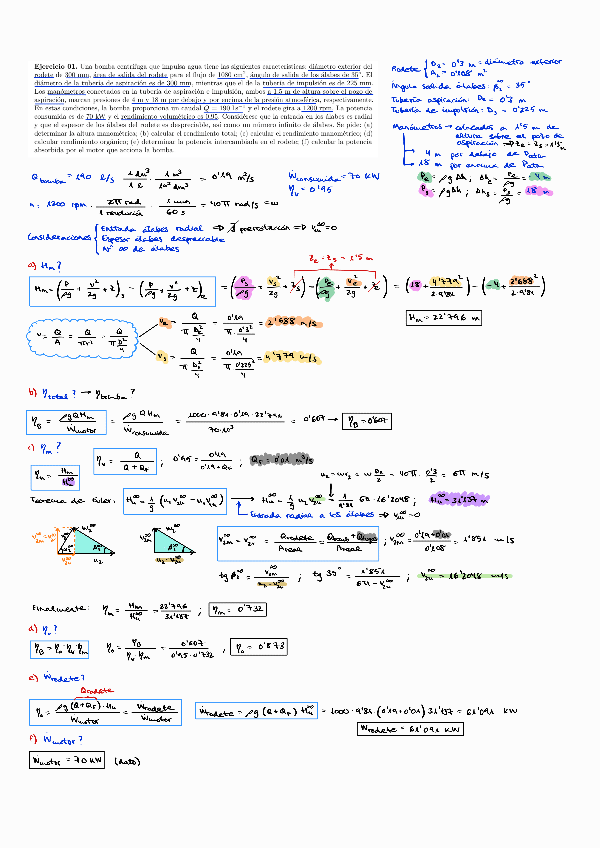 Ejercicio 01. Una bomba centrífuga que impulsa agua tiene las siguientes características: diámetro exterior del
rodete de 300 mm, área de salida del rodete para el flujo de 1080 cm², ángulo de salida de los álabes de 35°. El
diámetro de la tubería de aspiración es de 300 mm, mientras que el de la tubería de impulsión es de 225 mm.
Los manómetros conectados en la tubería de aspiración e impulsión, ambos a 1.5 m de altura sobre el pozo de
aspiración, marcan presiones de 4 m y 18 m por debajo y por encima de la presión atmosférica, respectivamente.
En estas condiciones, la bomba proporciona un caudal Q = 190 l s⁻¹ y el rodete gira a 1200 rpm. La potencia
consumida es de 70 kW y el rendimiento volumétrico es 0.95. Considérese que la entrada en los álabes es radial
y que el espesor de los álabes del rodete es despreciable, así como un número infinito de álabes. Se pide: (a)
determinar la altura manométrica; (b) calcular el rendimiento total; (c) calcular el rendimiento manométrico; (d)
calcular rendimiento orgánico; (e) determinar la potencia intercambiada en el rodete; (f) calcular la potencia
absorbida por el motor que acciona la bomba.
Rodete { D₂ = 0'3 m = diámetro exterior
A₂ = 0'108 m²
Ángulo salida álabes: β₂^∞ = 35°
Tubería aspiración: De = 0'3 m
Tubería de impulsión: Ds = 0'225 m
Manómetros → colocados a 1'5 m de
altura sobre el pozo de
aspiración
4 m por debajo de Patm
18 m por encima de Patm
Q bomba = 190 l/s · 1 dm³/1 l · 1 m³/10³ dm³ = 0'19 m³/s
Ẇconsumida = 70 KW
ηv = 0'95
n: 1200 rpm · 2π rad/1 revolución · 1 min/60 s = 40π rad/s = ω
Consideraciones { Entrada álabes radial ⇒ ∄ prerrotación
Espesor álabes despreciable
Nº ∞ de álabes
a) Hm?
Ze = Zs = 1'5 m
Hm = (P/ρg + v²/2g + z)s − (P/ρg + v²/2g + z)e = (Ps/ρg + vs²/2g + zs) − (Pe/ρg + ve²/2g + ze) = (18 + 4'779²/2·9'81) − (−4 + 2'688²/2·9'81)
Hm = 22'796 m
v = Q/A = Q/πr² = Q/π D²/4
ve = Q/π De²/4 = 0'19/π·0'3²/4 = 2'688 m/s
vs = Q/π Ds²/4 = 0'19/π 0'225²/4 = 4'779 m/s
b) ηtotal? → ηbomba?
ηB = ρgQHm/Ẇmotor = ρgQHm/Ẇconsumida = 1000·9'81·0'19·22'796/70·10³ = 0'607 → ηB = 0'607
c) ηm?
ηm = Hm/Hu^∞
ηv = Q/Q + Qf ; 0'95 = 0'19/0'19+Qf ; Qf = 0'01 m³/s
Teorema de Euler: Hu^∞ = 1/g (u₂ v₂u^∞ − u₁ v₁u^∞) → Hu^∞ = 1/g u₂ v₂u^∞ = 1/9'81 6π · 16'2048 ; Hu^∞ = 31'137 m
u₂ = ωr₂ = ω D₂/2 = 40π · 0'3/2 = 6π m/s
Entrada radial a los álabes ⇒ v₁u^∞ = 0
tg β₂^∞ = v₂m^∞/u₂ − v₂u^∞ ; tg 35° = 1'851/6π − v₂u^∞ ; v₂u^∞ = 16'2048 m/s
Finalmente: ηm = Hm/Hu^∞ = 22'796/31'137 ; ηm = 0'732
d) ηo?
ηB = ηo·ηv·ηm
ηo = ηB/ηv·ηm = 0'607/0'95·0'732 ; ηo = 0'873
e) Ẇrodete?
Qrodete
ηo = ρg(Q+Qf)·Hu/Ẇmotor = Ẇrodete/Ẇmotor
Ẇrodete = ρg (Q+Qf) Hu^∞ = 1000·9'81·(0'19+0'01) 31'137 = 61'091 KW
Ẇrodete = 61'091 KW
f) Ẇmotor?
Ẇmotor = 70 KW (dato)